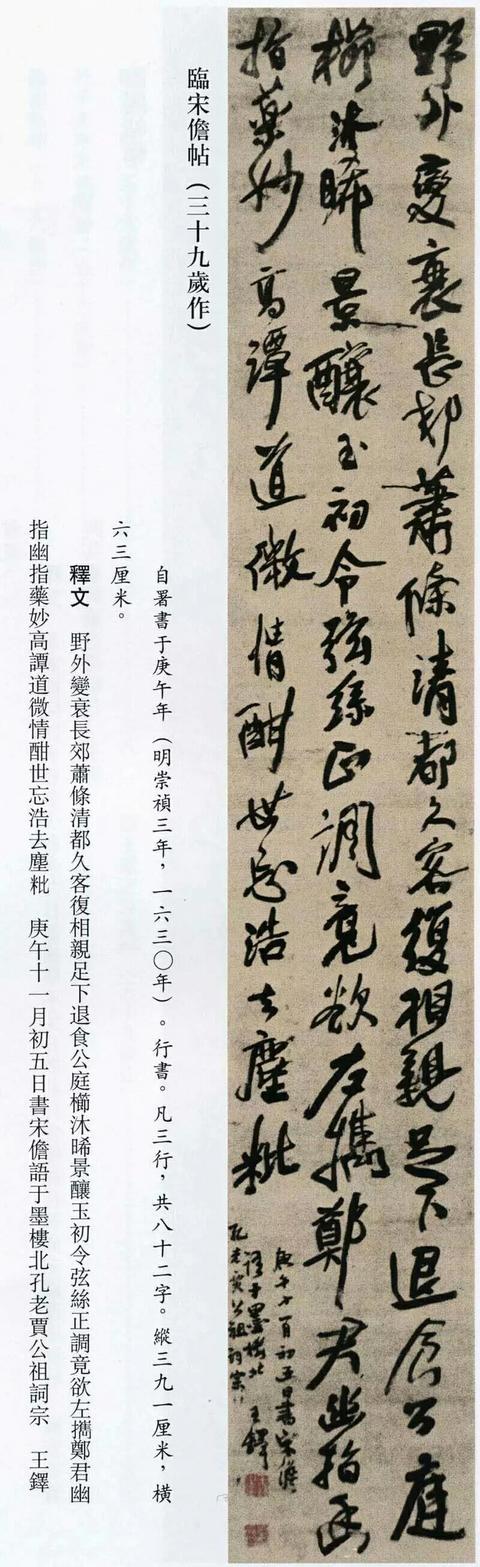 野外變衰長郊蕭條清都久客復相親足下退食公庭
櫛沐晞景釀玉初令弦絲正調竟欲左攜鄭君幽指幽
指藥妙高譚道微情酣世忘浩去塵粃
庚午十一月初五日書宋儋
語于墨樓北 王鐸
孔老賈公祖詞宗
臨宋儋帖（三十九歲作）
自署書于庚午年（明崇禎三年，一六三〇年）。行書。凡三行，共八十二字。縱三九一厘米，橫
六三厘米。
釋文　野外變衰長郊蕭條清都久客復相親足下退食公庭櫛沐晞景釀玉初令弦絲正調竟欲左攜鄭君幽
指幽指藥妙高譚道微情酣世忘浩去塵粃　庚午十一月初五日書宋儋語于墨樓北孔老賈公祖詞宗　王鐸